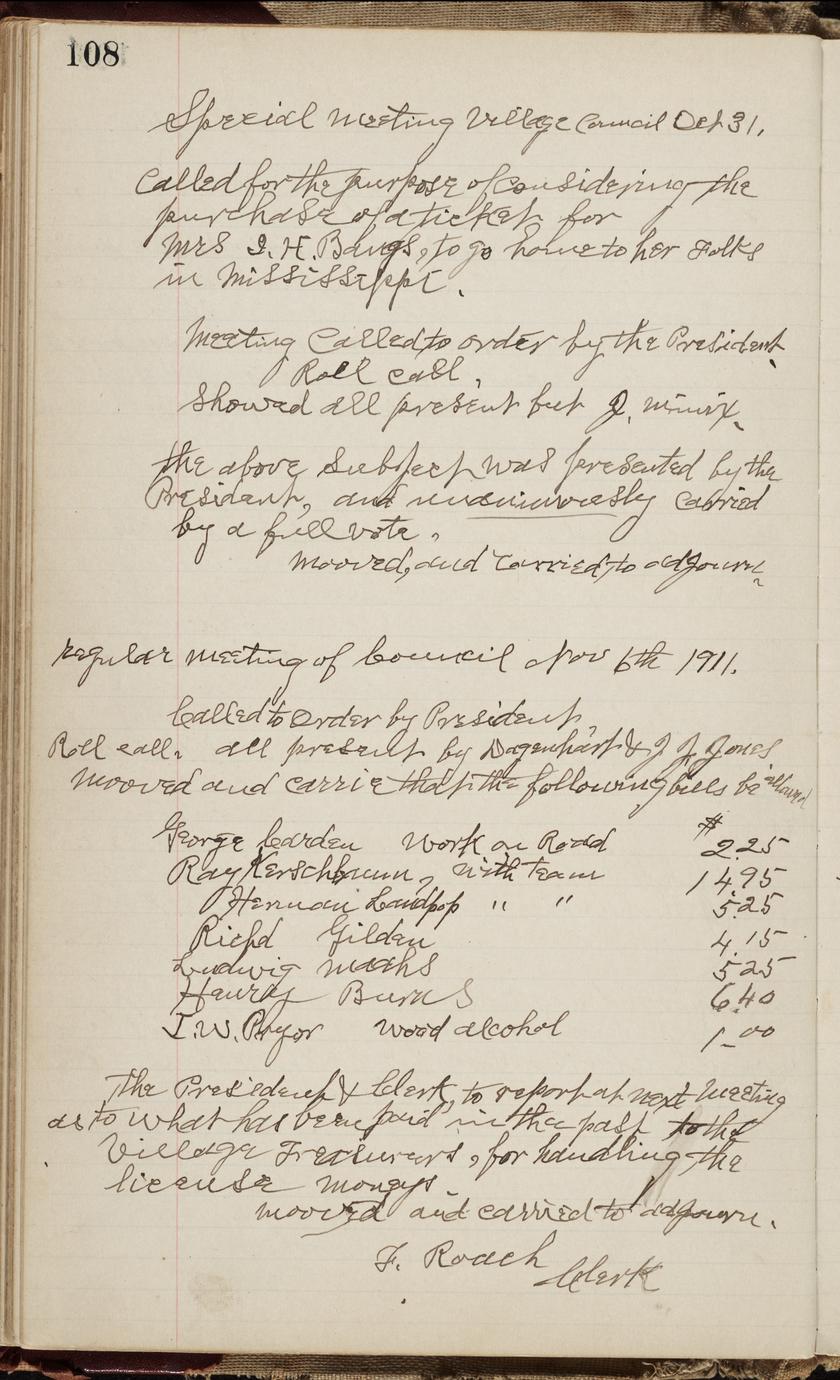 108
Special Meeting Village Council Oct 31.
Called for the purpose of considering the
purchase of a ticket for
Mrs I. H. Bangs, to go home to her Folks
in Mississippi.
Meeting Called to order by the President
Roll call.
Showed all present but J. Minix.
the above Subject was presented by the
President, and unanimously carried
by a full vote.
Mooved, and carried to adjourn
regular meeting of Council Nov 6th 1911.
Called to Order by President.
Roll call. all present by Dagenhart & J J Jones
Mooved and carrie that the following bills be allowed
George Carden Work on Road $2.25
Ray Kerschbaum, with Team 14.95
Herman " " 5.25
Richd Gilden 4.15
Ludwig 5.25
Henry Burns 6.40
I. W. Pryor Wood alcohol 1.00
The President & Clerk, to report at next Meeting
as to what has been paid in the past to the
Village Treasurers, for handling the
license moneys.
mooved and carried to adjourn.
F. Roach
Clerk